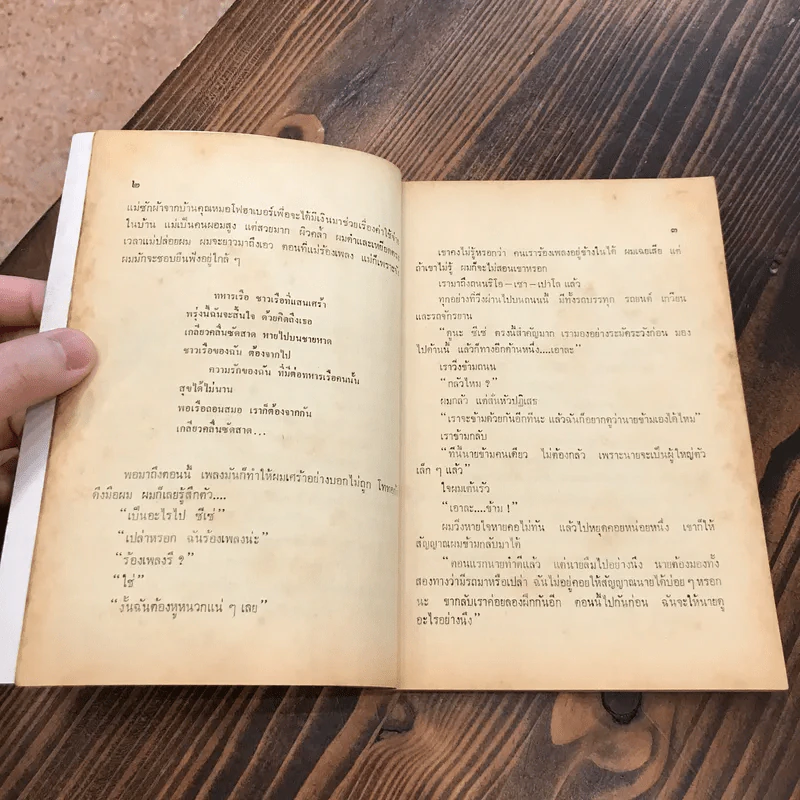 ๒
แม่ซักผ้าจากบ้านคุณหมอโฟฮาเบอร์เพื่อจะได้มีเงินมาช่วยเรื่องค่าใช้จ่าย
ในบ้าน แม่เป็นคนผอมสูง แต่สวยมาก ผิวคล้ำ ผมดำและเหยียดตรง
เวลาแม่ปล่อยผม ผมจะยาวมาถึงเอว ตอนที่แม่ร้องเพลง แม่ก็เพราะ
ผมมักจะชอบยืนฟังอยู่ใกล้ ๆ
ทหารเรือ ชาวเรือที่แสนเศร้า
พรุ่งนี้ฉันจะสิ้นใจ ด้วยคิดถึงเธอ
เกลียวคลื่นซัดสาด หายไปบนชายหาด
ชาวเรือของฉัน ต้องจากไป
ความรักของฉัน ที่มีต่อทหารเรือคนนั้น
สุขได้ไม่นาน
พอเรือถอนสมอ เราก็ต้องจากกัน
เกลียวคลื่นซัดสาด...
พอมาถึงตอนนี้ เพลงมันก็ทำให้ผมเศร้าอย่างบอกไม่ถูก
ดึงมือผม ผมก็เลยรู้สึกตัว....
“เป็นอะไรไป ซีเซ่”
“เปล่าหรอก ฉันร้องเพลงน่ะ”
“ร้องเพลงรึ ?
“ใช่”
“งั้นฉันต้องหูหนวกแน่ ๆ เลย”
๓
เขาคงไม่รู้หรอกว่า คนเราร้องเพลงอยู่ข้างในได้ ผมเฉยเสีย แต่
ถ้าเขาไม่รู้ ผมก็จะไม่สอนเขาหรอก
เรามาถึงถนนริโอ - เซา - เปาโล แล้ว
ทุกอย่างที่วิ่งผ่านไปบนถนนนี้ มีทั้งรถบรรทุก รถยนต์ เกวียน
และรถจักรยาน
“ดูนะ ซีเซ่ ตรงนี้สำคัญมาก เรามองอย่างระมัดระวังก่อน มอง
ไปด้านนี้ แล้วก็ทางอีกด้านหนึ่ง....เอาละ”
เราวิ่งข้ามถนน
“กลัวไหม ?
ผมกลัว แต่สั่นหัวปฏิเสธ
“เราจะข้ามด้วยกันอีกทีนะ แล้วฉันก็อยากดูว่านายข้ามเองได้ไหม”
เราข้ามกลับ
“ทีนี้นายข้ามคนเดียว ไม่ต้องกลัว เพราะนายจะเป็นผู้ใหญ่ตัว
เล็ก ๆ แล้ว”
ใจผมเต้นรัว
“เอาละ....ข้าม !”
ผมวิ่งหายใจหายคอไม่ทัน แล้วไปหยุดคอยหน่อยหนึ่ง เขาก็ให้
สัญญาณผมข้ามกลับมาได้
“ตอนแรกนายทำดีแล้ว แต่นายลืมไปอย่างนึง นายต้องมองทั้ง
สองทางว่ามีรถมาหรือเปล่า ฉันไม่อยู่คอยให้สัญญาณนายได้บ่อย ๆ หรอก
นะ ขากลับเราค่อยลองฝึกกันอีก ตอนนี้ไปกันก่อน ฉันจะให้นายดู
อะไรอย่างนึง”